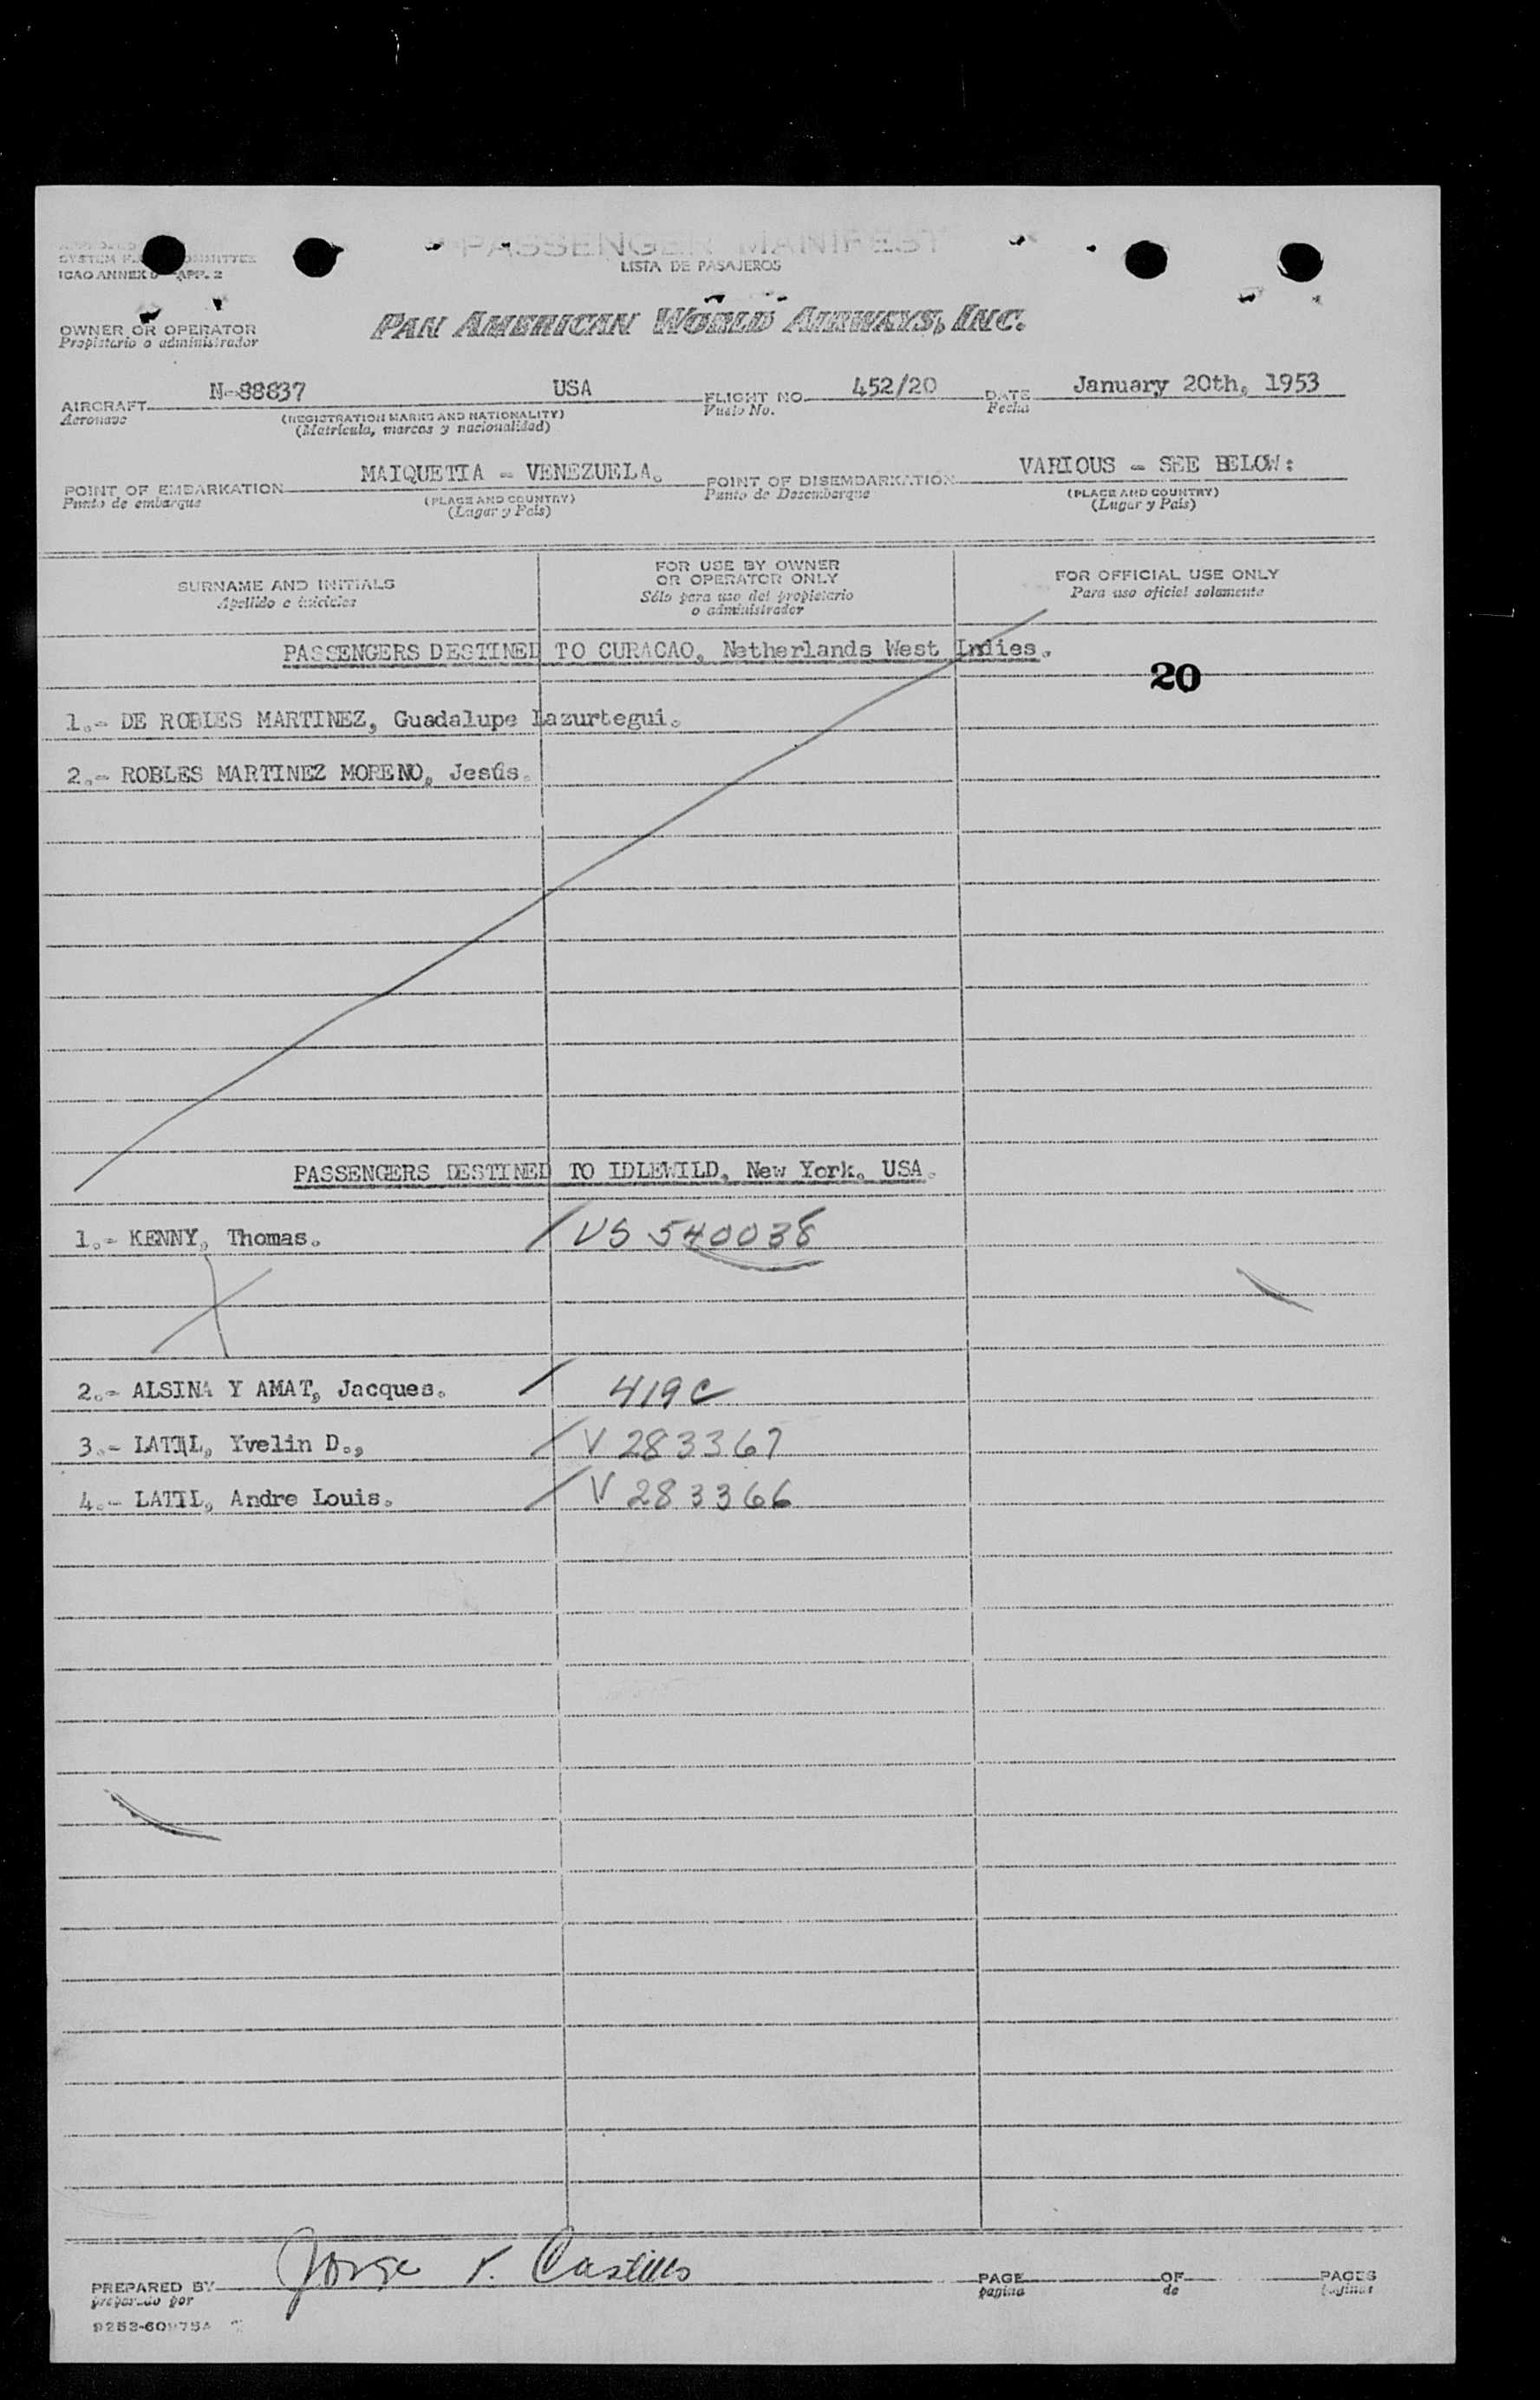 PASSENGER MANIFEST
LISTA DE PASAJEROS
SYSTEM COMMITTEE
ICAO ANNEX 9 APP. 2
OWNER OR OPERATOR
Propietario o administrador
PAN AMERICAN WORLD AIRWAYS, INC.
AIRCRAFT N-88837 USA FLIGHT NO. 452/20 DATE January 20th, 1953
Aeronave (REGISTRATION MARKS AND NATIONALITY) Vuelo No. Fecha
(Matricula, marcas y nacionalidad)
POINT OF EMBARKATION MAIQUETIA - VENEZUELA. POINT OF DISEMBARKATION VARIOUS - SEE BELOW:
Punto de embarque (PLACE AND COUNTRY) Punto de Desembarque (PLACE AND COUNTRY)
(Lugar y País) (Lugar y País)
SURNAME AND INITIALS
Apellido e iniciales
FOR USE BY OWNER
OR OPERATOR ONLY
Sólo para uso del propietario
o administrador
FOR OFFICIAL USE ONLY
Para uso oficial solamente
PASSENGERS DESTINED TO CURACAO, Netherlands West Indies.
20
1.- DE ROBLES MARTINEZ, Guadalupe Lazurtegui.
2.- ROBLES MARTINEZ MORENO, Jesús.
PASSENGERS DESTINED TO IDLEWILD, New York, USA.
1.- KENNY, Thomas. / US 540038
2.- ALSINA Y AMAT, Jacques. / 419C
3.- LATIL, Yvelin D., / V 283367
4.- LATIL, Andre Louis. / V 283366
PREPARED BY Jorge V. Castillo PAGE OF PAGES
preparado por pagina de paginas